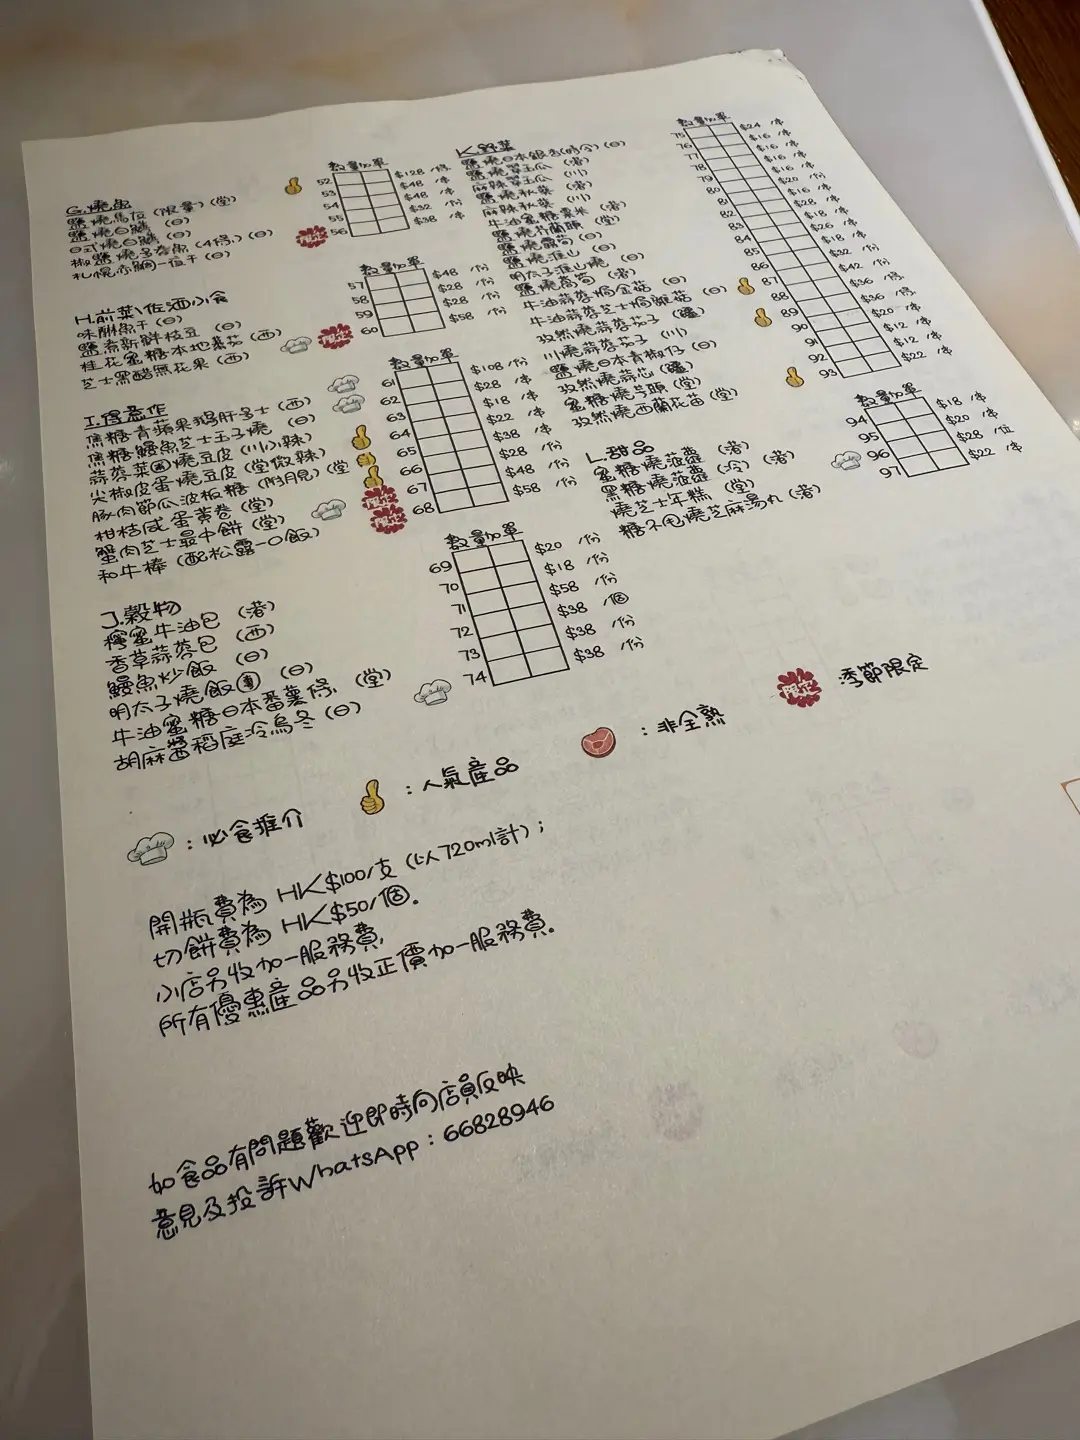 G.燒魚
數量加單
鹽燒馬友 (限量) (堂) 52 $128 /條
鹽燒白鱔 (日) 53 $48 /串
日式燒白鱔 (日) 54 $48 /串
椒鹽燒多春魚 (4條) (日) 55 $32 /份
札幌赤鯛一夜干 (日) 限定 56 $38 /串
H.前菜、佐酒小食
數量加單
味醂魚干 (日) 57 $48 /份
鹽煮新鮮枝豆 (日) 58 $28 /份
桂花蜜糖本地番茄 (西) 59 $28 /份
芝士黑醋無花果 (西) 限定 60 $58 /份
I.得意作
數量加單
焦糖青蘋果鵝肝多士 (西) 61 $108 /份
焦糖鰻魚芝士玉子燒 (日) 62 $28 /串
蒜蓉菜燒豆皮 (川小辣) 63 $18 /串
尖椒皮蛋燒豆皮 (堂微辣) 64 $22 /串
豚肉節瓜波板糖 (附月見) (堂 65 $38 /串
柑桔咸蛋黃卷 (堂) 66 $28 /份
蟹肉芝士最中餅 (堂) 限定 67 $48 /份
和牛棒 (配松露一口飯) 限定 68 $58 /份
J.穀物
數量加單
檸蜜牛油包 (港) 69 $20 /份
香草蒜蓉包 (西) 70 $18 /份
鰻魚炒飯 (日) 71 $58 /份
明太子燒飯 (日) 72 $38 /個
牛油蜜糖日本番薯條 (堂) 73 $38 /份
胡麻醬稻庭冷烏冬 (日) 74 $38 /份
K.野菜
數量加單
鹽燒日本銀杏(時令) (日) 75 $24 /串
鹽燒翠玉瓜 (港) 76 $16 /串
麻辣翠玉瓜 (川) 77 $16 /串
鹽燒秋葵 (港) 78 $16 /串
麻辣秋葵 (川) 79 $16 /串
牛油蜜糖粟米 (港) 80 $20 /份
鹽燒芥蘭頭 (堂) 81 $16 /串
鹽燒露筍 (日) 82 $28 /串
鹽燒淮山 (日) 83 $18 /串
明太子淮山燒 (日) 84 $26 /串
鹽燒萵筍 (港) 85 $18 /串
牛油蒜蓉焗金菇 (日) 86 $32 /份
牛油蒜蓉芝士焗雜菇 (日) 87 $42 /份
孜然燒蒜蓉茄子 (疆) 88 $36 /條
川燒蒜蓉茄子 (川) 89 $36 /條
鹽燒日本青椒仔 (日) 90 $20 /串
孜然燒蒜芯 (疆) 91 $12 /串
蜜糖燒芋頭 (堂) 92 $12 /串
孜然燒西蘭花苗 (堂) 93 $22 /串
L.甜品
數量加單
蜜糖燒菠蘿 (港) 94 $18 /串
黑糖燒菠蘿 (冷) (港) 95 $20 /串
燒芝士年糕 (堂) 96 $28 /位
糖不甩燒芝麻湯丸 (港) 97 $22 /串
:必食推介
:人氣產品
:非全熟
限定 :季節限定
開瓶費為 HK$100/支 (以720ml計) ;
切餅費為 HK$50/個.
小店另收加一服務費,
所有優惠產品另收正價加一服務費.
如食品有問題歡迎即時向店員反映
意見及投訴WhatsApp : 66828946